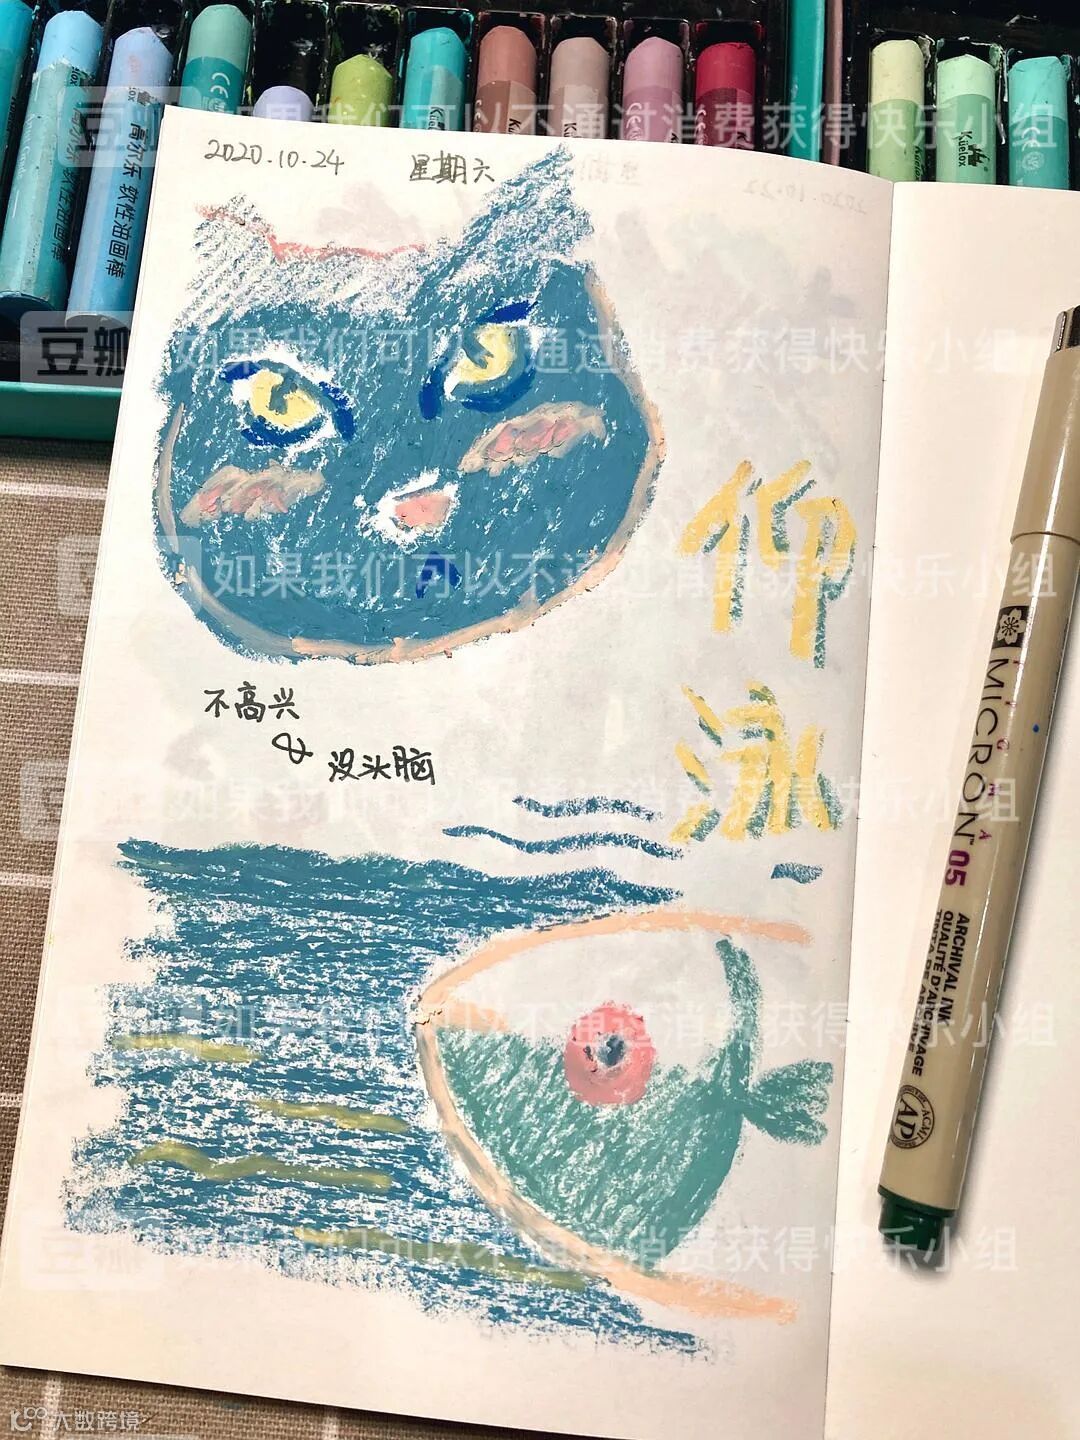 2020.10.24 星期六
仰
泳
不高兴
&
没头脑
高尔乐 软性油画棒
高尔乐 软性油画棒
Kuelox
Kuelox
MICRON™ 05
ARCHIVAL INK
QUALITÉ D'ARCHIVAGE
TINTA DE ARCHIVE
ACMI
AP
豆瓣 如果我们可以不通过消费获得快乐小组
豆瓣 如果我们可以不通过消费获得快乐小组
如果我们可以不通过消费获得快乐小组
如果我们可以不通过消费获得快乐小组
如果我们可以不通过消费获得快乐小组
如果我们可以不通过消费获得快乐小组
大数跨境